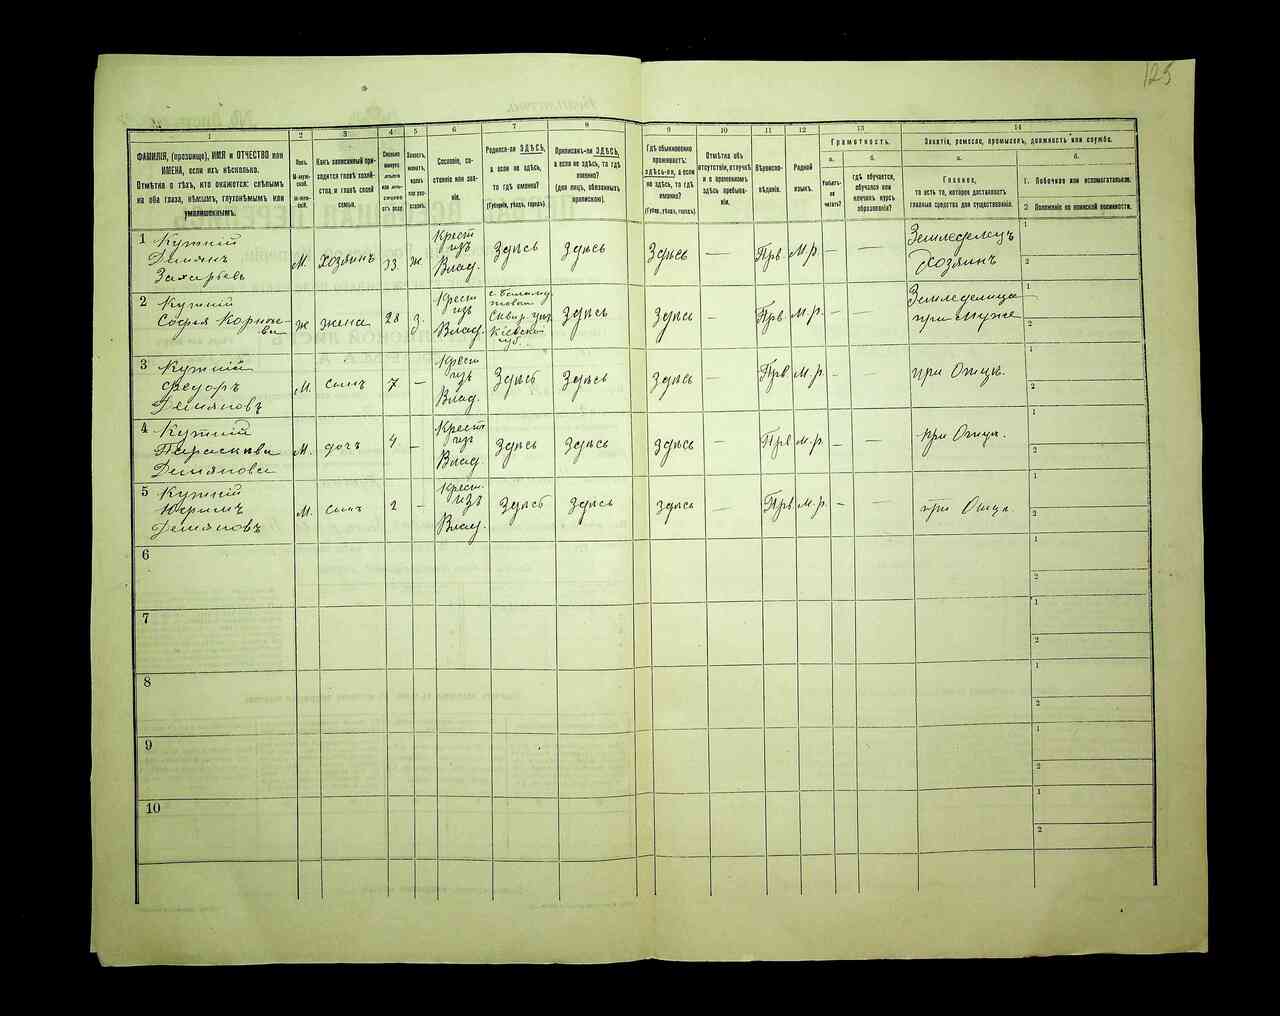 125
1
2
3
4
5
6
7
8
9
10
11
12
13
14
ФАМИЛІЯ, (прозвище), ИМЯ и ОТЧЕСТВО или
ИМЕНА, если ихъ нѣсколько.
Отмѣтка о тѣхъ, кто окажется: слѣпымъ
на оба глаза, нѣмымъ, глухонѣмымъ или
умалишеннымъ.
Полъ.
М-мужской.
Ж-женскій.
Какъ записанный при-
ходится главѣ хозяй-
ства и главѣ своей
семьи.
Сколько
минуло
лѣтъ
Холостъ,
женатъ,
вдовъ
Сословіе, со-
стояніе или зва-
ніе.
Родился-ли ЗДѢСЬ,
а если не здѣсь,
то гдѣ именно?
(Губернія, уѣздъ, городъ).
Приписанъ-ли ЗДѢСЬ,
а если не здѣсь, то гдѣ
именно?
(для лицъ, обязанныхъ
припискою).
Гдѣ обыкновенно
проживаетъ:
здѣсь-ли, а если
не здѣсь, то гдѣ
именно?
(Губер., уѣздъ, городъ).
Отмѣтка объ
отсутствіи, отлучкѣ
и о временномъ
здѣсь пребыва-
ніи.
Вѣроиспо-
вѣданіе.
Родной
языкъ.
Грамотность.
а.
Умѣетъ-
ли
читать?
б.
гдѣ обучается,
обучался или
кончилъ курсъ
образованія?
Занятіе, ремесло, промыселъ, должность или служба.
а.
Главное,
то есть то, которое доставляетъ
главныя средства для существованія.
б.
1. Побочное или вспомогательное.
2 Положеніе по воинской повинности.
1 Кутній
Демьянъ
Захарьевъ
М.
хозяинъ
33
ж
Крест
изъ
Влад.
Здѣсь
Здѣсь
Здѣсь
—
Прв.
М.р.
—
—
Земледѣлецъ
Хозяинъ
1
2
2 Кутній
Софья Корнѣе-
ва
ж
жена
28
з.
Крест
изъ
Влад.
Сквир. уѣз.
Кіевской
губ.
Здѣсь
Здѣсь
—
Прв.
М.р.
—
—
Земледѣлица
при Мужѣ
1
2
3 Кутній
Федоръ
Демяновъ
М.
сынъ
7
—
Крест
изъ
Влад.
Здѣсь
Здѣсь
Здѣсь
—
Прв
М.р.
—
—
при Отцѣ.
1
2
4 Кутній
Параскива
Демянова
М.
дочъ
4
—
Крест
изъ
Влад
Здѣсь
Здѣсь
Здѣсь
—
Прв
М.р.
—
—
при Отцѣ.
1
2
5 Кутній
Демяновъ
М.
сынъ
2
—
Крест.
изъ
Влад.
Здѣсь
Здѣсь
Здѣсь
—
Прв.
М.р.
—
—
при Отцѣ.
1
2
6
1
2
7
1
2
8
1
2
9
1
2
10
1
2